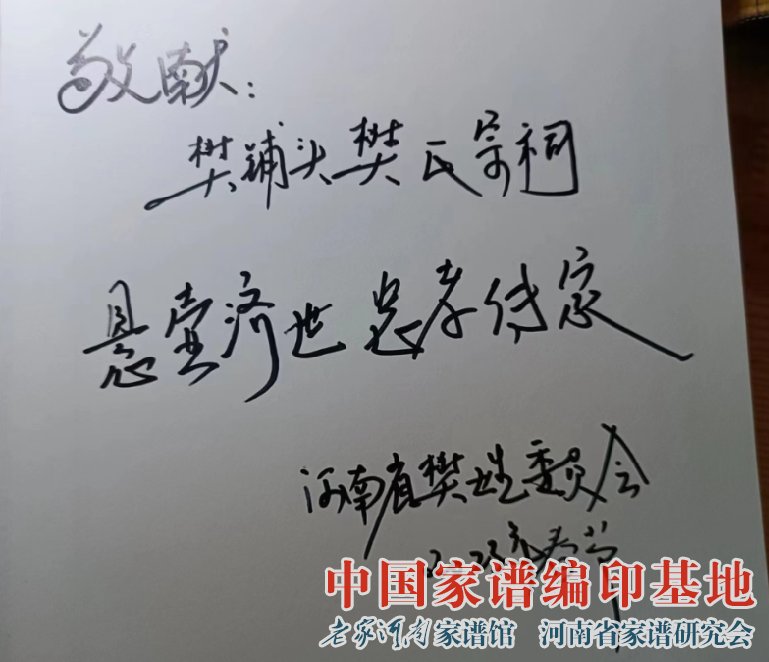 敬献：
樊铺头樊氏宗祠
悬壶济世 忠孝传家
河南省樊姓委员会
2023年春节
中国家谱编印基地
老家河南家谱馆 河南省家谱研究会